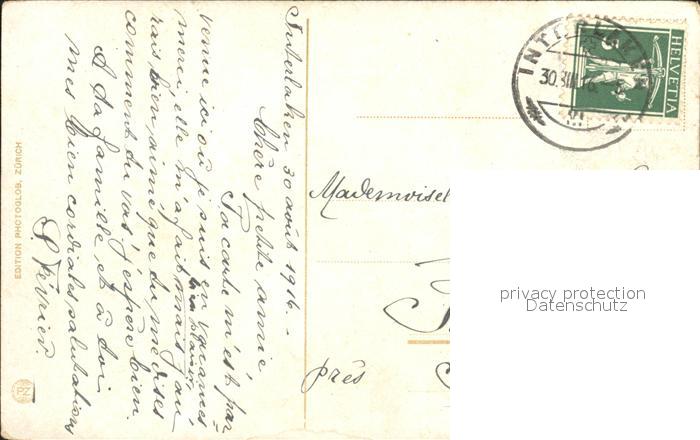 Interlaken 30 août 1916. -
Chère petite amie,
Ta carte m'est par=
venue ici où je suis en vacances
merci, elle m'a fait bien plaisir mais j'au
rais bien aimé que tu me dises
comment tu vas, j'espère bien.
A ta famille et à toi
mes bien cordiales salutations
Février.
EDITION PHOTOGLOB, ZÜRICH
PZ
INTERLAKEN
30.VIII.16.
HELVETIA
5
Mademoisel
près
privacy protection
Datenschutz